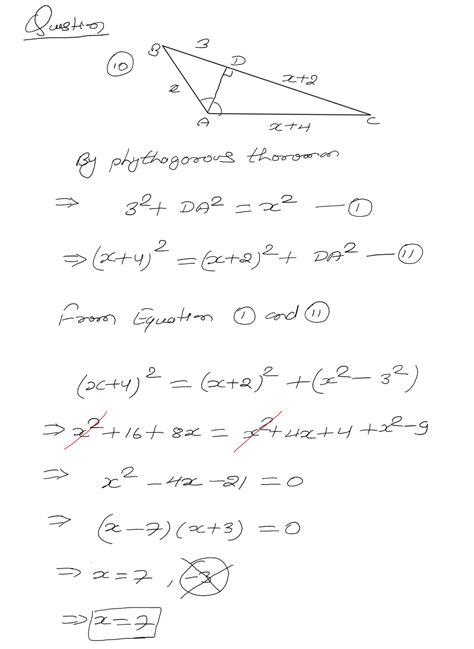 Question
⑩
B 3 D x+2
x
A x+4 C
By phythogorous thorom
⇒ 3² + DA² = x² — Ⓘ
⇒ (x+4)² = (x+2)² + DA² — ⑪
From Equation Ⓘ and ⑪
(x+4)² = (x+2)² + (x² - 3²)
⇒ x² + 16 + 8x = x² + 4x + 4 + x² - 9
⇒ x² - 4x - 21 = 0
⇒ (x-7) (x+3) = 0
⇒ x = 7, -3
⇒ x = 7